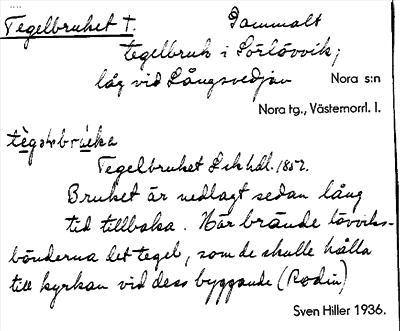 Tegelbruket †. Gammalt
tegelbruk i Sörlövvik;
låg vid Långsvedjan Nora s:n
Nora tg., Västernorrl. l.
Tegelbruket Lskhdl. 1857.
Bruket är nedlagt sedan lång
tid tillbaka. Här brände lövviks-
bönderna det tegel, som de skulle hålla
till kyrkan vid dess byggande (Rodin)
Sven Hiller 1936.